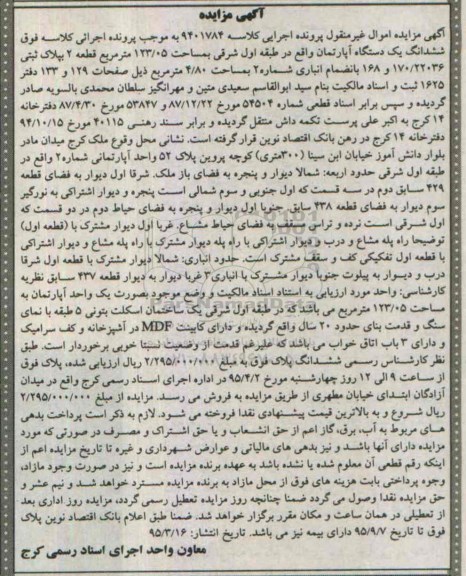 آگهی مزایده
آگهی مزایده اموال غیرمنقول پرونده اجرایی کلاسه ۹۴۰۱۷۸۴ به موجب پرونده اجرائی کلاسه فوق
ششدانگ یک دستگاه آپارتمان واقع در طبقه اول شرقی بمساحت ۱۲۳/۰۵ مترمربع قطعه ۲ بپلاک ثبتی
۱۷۰/۲۲۰۳۶ و ۱۶۸ بانضمام انباری شماره۲ بمساحت ۴/۸۰ مترمربع ذیل صفحات ۱۲۹ و ۱۳۳ دفتر
۱۶۲۵ ثبت و اسناد مالکیت بنام سید ابوالقاسم سعیدی متین و مهرانگیز سلطان محمدی بالسویه صادر
گردیده و سپس برابر اسناد قطعی شماره ۵۴۵۰۴ مورخ ۸۷/۱۲/۲۲ و ۵۳۸۴۷ مورخ ۸۷/۴/۳۰ دفترخانه
۱۴ کرج به اکبر علی پرست تکمه داش منتقل گردیده و برابر سند رهنی ۴۰۱۱۵ مورخ ۹۴/۱۰/۱۵
دفترخانه ۱۴ کرج در رهن بانک اقتصاد نوین قرار گرفته است. نشانی محل وقوع ملک کرج میدان مادر
بلوار دانش آموز خیابان ابن سینا (۳۰۰متری) کوچه پروین پلاک ۵۲ واحد آپارتمانی شماره۲ واقع در
طبقه اول شرقی حدود اربعه: شمالا دیوار و پنجره به فضای باز ملک. شرقا اول دیوار به فضای قطعه
۴۲۹ سابق دوم در سه قسمت که اول جنوبی و سوم شمالی است پنجره و دیوار اشتراکی به نورگیر
سوم دیوار به فضای قطعه ۴۳۸ سابق جنوبا اول دیوار و پنجره به فضای حیاط دوم در دو قسمت که
اول شرقی است نرده و تراس است به فضای حیاط مشاع. غربا اول دیوار مشترک با (قطعه اول)
توضیحا راه پله مشاع و درب و دیوار اشتراکی با راه پله دیوار مشترک با راه پله مشاع و دیوار اشتراکی
با قطعه اول تفکیکی کف و سقف مشترک است. حدود انباری: شمالا دیوار مشترک با قطعه اول شرقا
درب و دیوار به پیلوت جنوبا دیوار مشترک با انباری۳ غربا دیوار به دیوار قطعه ۴۳۷ سابق نظریه
کارشناسی: واحد مورد ارزیابی به استناد اسناد مالکیت و وضع موجود بصورت یک واحد آپارتمان به
مساحت ۱۲۳/۰۵ مترمربع می باشد که در طبقه اول شرقی یک ساختمان اسکلت بتونی ۵ طبقه با نمای
سنگ و قدمت بنای حدود ۲۰ سال واقع گردیده و دارای کابینت MDF در آشپزخانه و کف سرامیک
و دارای ۳ باب اتاق خواب می باشد که علیرغم قدمت از وضعیت نسبتا خوبی برخوردار است. طبق
نظر کارشناس رسمی ششدانگ پلاک فوق به مبلغ ۲/۲۹۵/۰۰۰/۰۰۰ ریال ارزیابی شده، پلاک فوق
از ساعت ۹ الی ۱۲ روز چهارشنبه مورخ ۹۵/۴/۲ در اداره اجرای اسناد رسمی کرج واقع در میدان
آزادگان ابتدای خیابان مطهری از طریق مزایده به فروش می رسد. مزایده از مبلغ ۲/۲۹۵/۰۰۰/۰۰۰
ریال شروع و به بالاترین قیمت پیشنهادی نقدا فروخته می شود. لازم به ذکر است پرداخت بدهی
های مربوط به آب، برق، گاز اعم از حق انشعاب و یا حق اشتراک و مصرف در صورتی که مورد
مزایده دارای آنها باشد و نیز بدهی های مالیاتی و عوارض شهرداری و غیره تا تاریخ مزایده اعم از
اینکه رقم قطعی آن معلوم شده یا نشده باشد به عهده برنده مزایده است و نیز در صورت وجود مازاد،
وجوه پرداختی بابت هزینه های فوق از محل مازاد به برنده مزایده مسترد خواهد شد و نیم عشر و
حق مزایده نقدا وصول می گردد ضمنا چنانچه روز مزایده تعطیل رسمی گردد، مزایده روز اداری بعد
از تعطیلی در همان ساعت و مکان مقرر برگزار خواهد شد. ضمنا طبق اعلام بانک اقتصاد نوین پلاک
فوق تا تاریخ ۹۵/۹/۷ دارای بیمه نیز می باشد. تاریخ انتشار: ۹۵/۳/۱۶
معاون واحد اجرای اسناد رسمی کرج